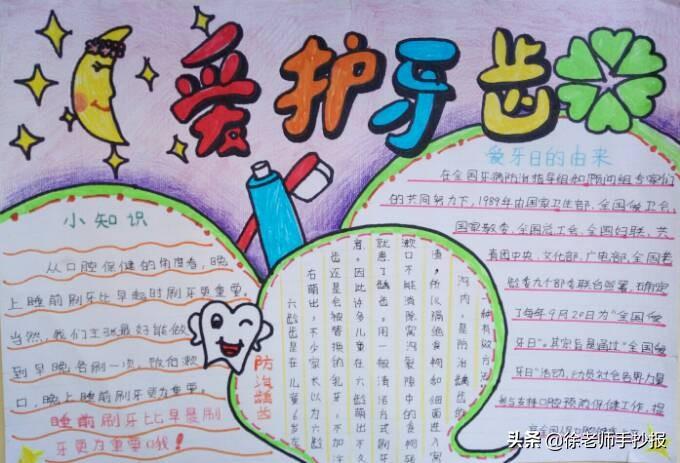 爱护牙齿
小知识
从口腔保健的角度看，晚
上睡前刷牙比早起时刷牙更重要。
当然，我们主张最好能做
到早晚各刷一次，饭后漱
口，晚上睡前刷牙更为重要。
睡前刷牙比早晨刷
牙更为重要哦！
防治龋齿
六龄齿是在儿童6岁左
右萌出，不少家长以为六龄
齿还是会被替换的乳牙，不加
意。因此许多儿童六龄萌出不久
就患了龋齿。用一般清洁方式刷牙
漱口不能消除窝沟裂隙中的食
渣，所以隔绝食物和细菌进入窝
沟内，是防治龋齿的
一种有效方法
爱牙日的由来
在全国牙病防治指导组和顾问组专家们
的共同努力下，1989年由国家卫生部、全国爱卫会、
国家教委、全国总工会、全国妇联、共
青团中央、文化部、广电部、全国老
龄委九个部委联合签署，确定
了每年9月20日为“全国爱
牙日”。其宗旨是通过“全国爱
牙日”活动，动员社会各界力量
参与支持口腔预防保健工作，提
头条 @徐老师手抄报